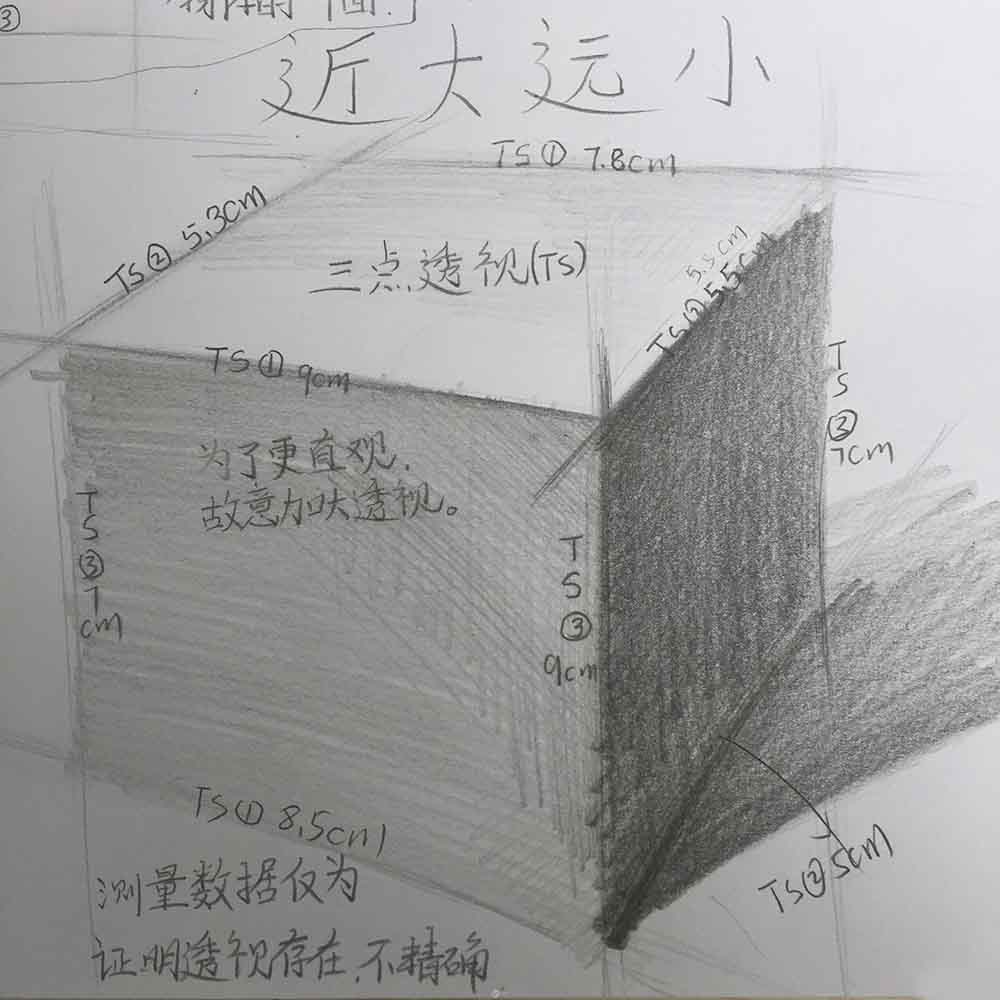 ③
近大远小
TS① 7.8cm
TS② 5.3cm
三点透视(TS)
5.5cm
TS② 5.5cm
TS① 9cm
TS③ 7cm
为了更直观,
故意加大透视。
TS③ 7cm
TS③ 9cm
TS① 8.5cm
TS② 5cm
测量数据仅为
证明透视存在,不精确